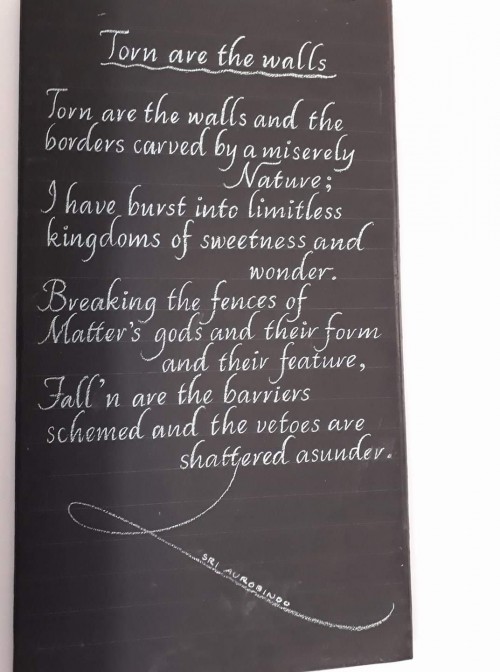 Torn are the walls
Torn are the walls and the
borders carved by a miserely
Nature;
I have burst into limitless
kingdoms of sweetness and
wonder.
Breaking the fences of
Matter's gods and their form
and their feature,
Fall'n are the barriers
schemed and the vetoes are
shattered asunder.
SRI AUROBINDO